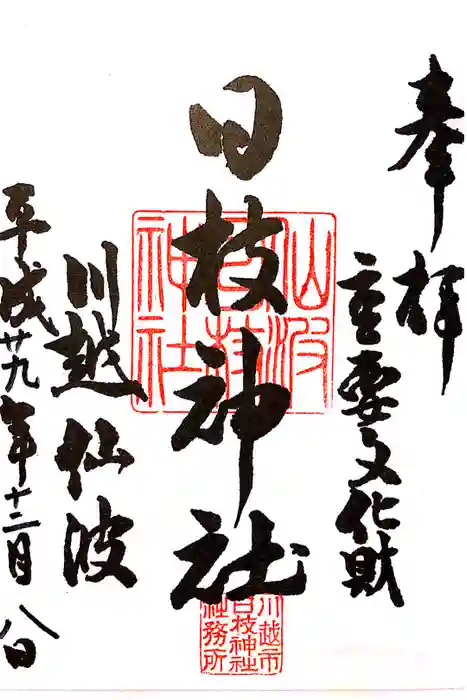 奉拝
重要文化財
日枝神社
川越仙波
平成廿九年十二月八日
仙波
日枝
神社
川越市
日枝神社
社務所